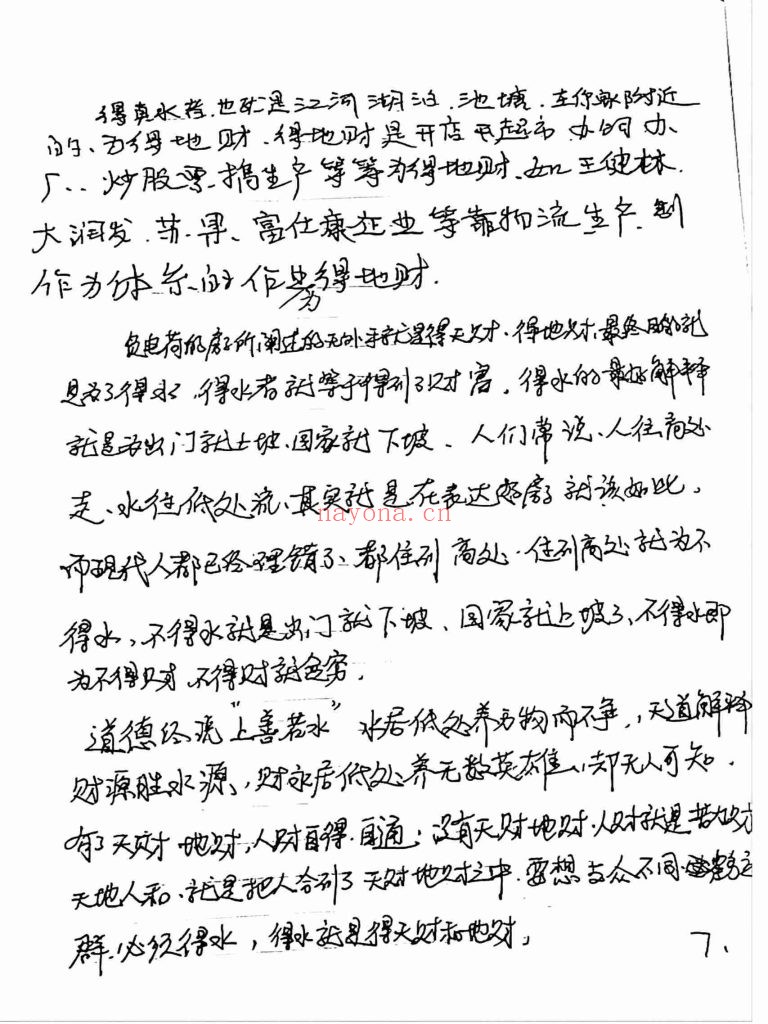 得真水者.也就是江河湖泊.池塘.在你家附近
的、为得地财.得地财是开店 超市.办 办
厂..炒股票.搞生产等等为得地财.如王健林.
大润发.苏果、富仕康企业等靠物流生产.制
作为体系的作为得地财.
负电荷的 所阐述的无外乎就是得天财、得地财,最终目的就
是为了得水,得水者就等于得到了财富。得水的最好解释
就是为出门就上坡、回家就下坡、人们常说、人往高处
走、水往低处流、其实就是在表达 就该如此。
而现代人都已经理错了、都住到高处.住到高处就为不
得水,不得水就是出门就下坡、回家就上坡了、不得水即
为不得财,不得财就会穷。
nayona.cn
道德经说"上善若水"水居低处养万物而不争,天道解释
财源胜水源,财水居低处养无数英雄,却无人可知.
有了天财地财,人财自得.自通;没有天财地财.人财就是苦力财
天地人和.就是把人合到了天财地财之中.要想与众不同
群.必须得水,得水就是得天财和地财,
7.